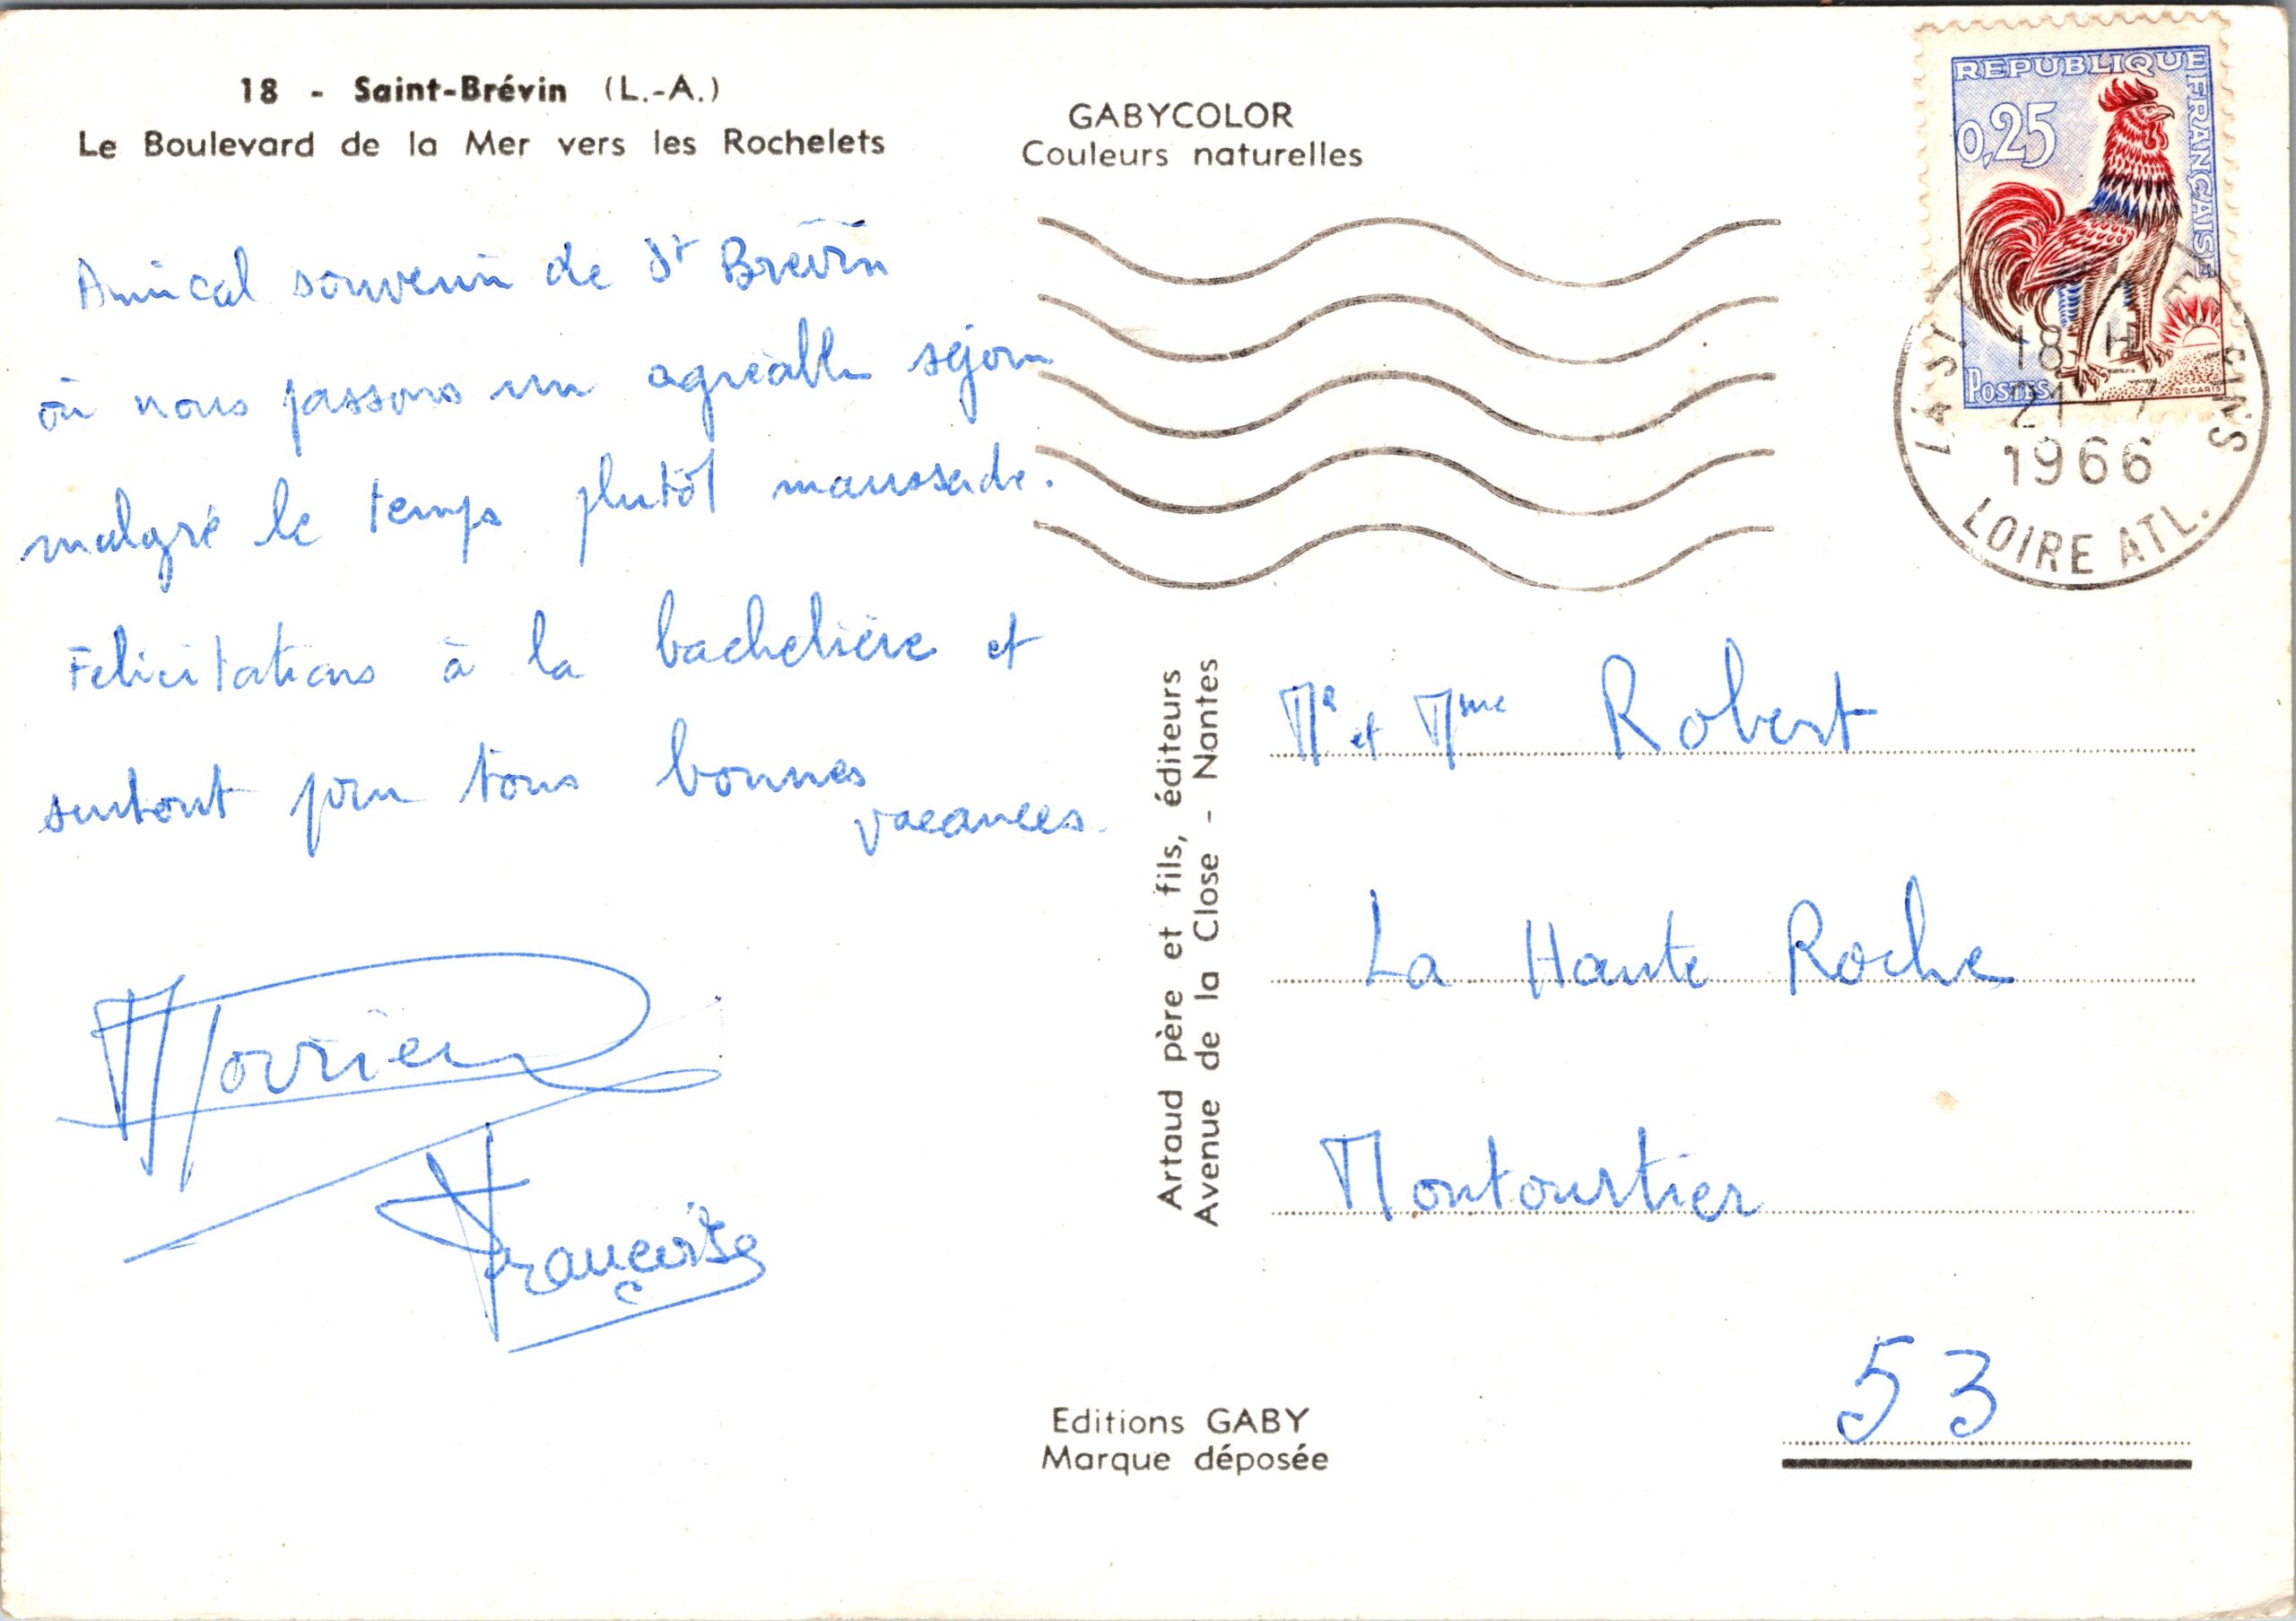 18 - Saint-Brévin (L.-A.)
Le Boulevard de la Mer vers les Rochelets
GABYCOLOR
Couleurs naturelles
REPUBLIQUE FRANÇAISE
0,25
POSTES
DECARIS
18 H
21 - 7
1966
LOIRE ATL.
Amical souvenir de St Brévin
où nous passons un agréable séjour
malgré le temps plutôt maussade.
Félicitations à la bachelière et
surtout pour tous bonnes
vacances.
Françoise
Artaud père et fils, éditeurs
Avenue de la Close - Nantes
Mr et Mme Robert
La Haute Roche
Montourtier
53
Editions GABY
Marque déposée